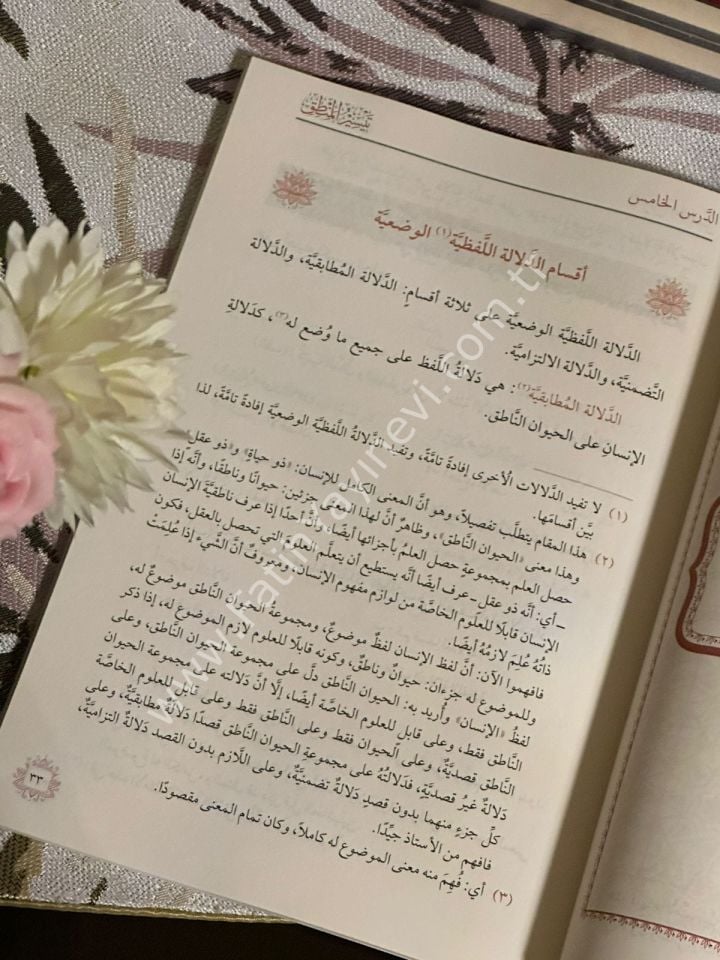 تيسير المنطق
الدَّرس الخامس
أقسام الدَّلالة اللَّفظيَّة(١) الوضعيَّة
الدَّلالة اللَّفظيَّة الوضعيَّة على ثلاثة أقسامٍ: الدَّلالة المُطابقيَّة، والدَّلالة
التَّضمنيَّة، والدَّلالة الالتزاميَّة.
الدَّلالة المُطابقيَّة(٢): هي دَلالةُ اللَّفظ على جميع ما وُضع له(٣)، كدَلالةِ
الإنسانِ على الحيوان النَّاطق.
(١) لا تفيد الدَّلالات الأخرى إفادةً تامَّةً، وتفيد الدَّلالةُ اللَّفظيَّة الوضعيَّة إفادةً تامَّةً، لذا
بيَّن أقسامَها.
(٢) هذا المقام يتطلَّب تفصيلًا، وهو أنَّ المعنى الكامل للإنسان: «ذو حياةٍ» و«ذو عقلٍ»
وهذا معنى «الحيوان النَّاطق»، وظاهرٌ أنَّ لهذا المعنى جزئين: حيوانًا وناطقًا، وأنَّه إذا
حصل العلم بمجموعةٍ حصل العلمُ بأجزائها أيضًا، وأنَّ أحدًا إذا عرف ناطقيَّةَ الإنسان
ـ أي: أنَّه ذو عقلٍ ـ عرف أيضًا أنَّه يستطيع أن يتعلَّم العلومَ التي تحصل بالعقل، فكون
الإنسان قابلًا للعلوم الخاصَّة من لوازم مفهوم الإنسان، ومعروفٌ أنَّ الشَّيء إذا عُلِمَتْ
ذاتُهُ عُلِمَ لازمُهُ أيضًا.
فافهموا الآن: أنَّ لفظ الإنسان لفظٌ موضوعٌ، ومجموعةُ الحيوان النَّاطق موضوعٌ له،
وللموضوع له جزءان: حيوانٌ وناطقٌ، وكونه قابلًا للعلوم لازم الموضوع له، إذا ذكر
لفظُ «الإنسان» وأُريد به: الحيوان النَّاطق دلَّ على مجموعة الحيوان النَّاطق، وعلى
النَّاطق فقط، وعلى قابل للعلوم الخاصَّة أيضًا، إلَّا أنَّ دَلالته على مجموعة الحيوان
النَّاطق قصديَّةٌ، وعلى الحيوان فقط وعلى النَّاطق فقط وعلى قابل للعلوم الخاصَّة
دَلالةٌ غيرُ قصديَّةٍ، فدَلالتُهُ على مجموعةِ الحيوان النَّاطق قصدًا دَلالةٌ مطابقيَّةٌ، وعلى
كلِّ جزءٍ منهما بدون قصدٍ دَلالةٌ تضمنيَّةٌ، وعلى اللَّازم بدون القصد دَلالةٌ التزاميَّةٌ،
فافهم من الأستاذ جيِّدًا.
(٣) أي: فُهِمَ منه معنى الموضوع له كاملًا، وكان تمام المعنى مقصودًا.
٣٣
www.fatihyayinevi.com.tr